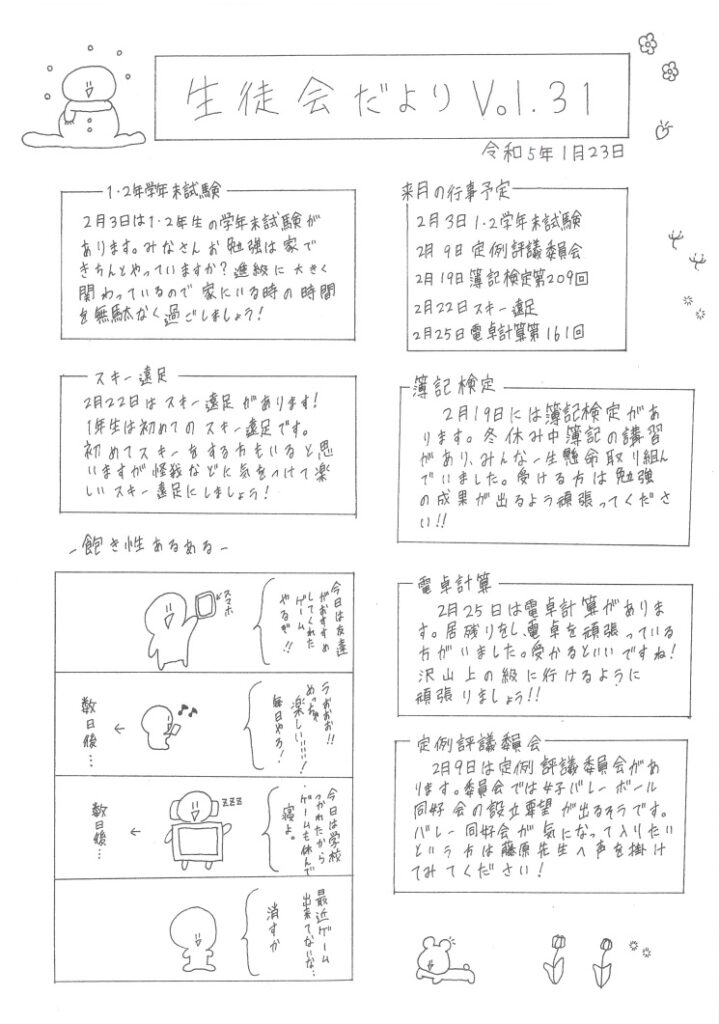 生徒会だより Vol.31
令和5年1月23日
1・2年学年末試験
2月3日は1・2年生の学年末試験が
あります。みなさんお勉強は家で
きちんとやっていますか？進級に大きく
関わっているので家にいる時の時間
を無駄なく過ごしましょう！
スキー遠足
2月22日はスキー遠足があります！
1年生は初めてのスキー遠足です。
初めてスキーをする方もいると思
いますが怪我などに気をつけて楽
しいスキー遠足にしましょう！
来月の行事予定
2月3日1・2学年末試験
2月9日定例評議委員会
2月19日簿記検定第209回
2月22日スキー遠足
2月25日電卓計算第161回
簿記検定
2月19日には簿記検定があ
ります。冬休み中簿記の講習
があり、みんな一生懸命取り組ん
でいました。受ける方は勉強
の成果が出るよう頑張ってくださ
い!!
電卓計算
2月25日は電卓計算がありま
す。居残りをし、電卓を頑張っている
方がいました。受かるといいですね！
沢山上の級に行けるように
頑張りましょう!!
定例評議委員会
2月9日は定例評議委員会があ
ります。委員会では女子バレーボール
同好会の設立要望が出るそうです。
バレー同好会が気になって入りたい
という方は藤原先生へ声を掛け
てみてください！
-飽き性あるある-
今日は友達
がおすすめ
してくれた
ゲーム
やるぞ!!
←スマホ
うおおお!!
めっちゃ
楽しい!!!!
毎日やろ！
←
数日後…
今日は学校
つかれたから
ゲームも休んで
寝よ。
zzz
←
数日後…
最近ゲーム
出来てないな…
消すか